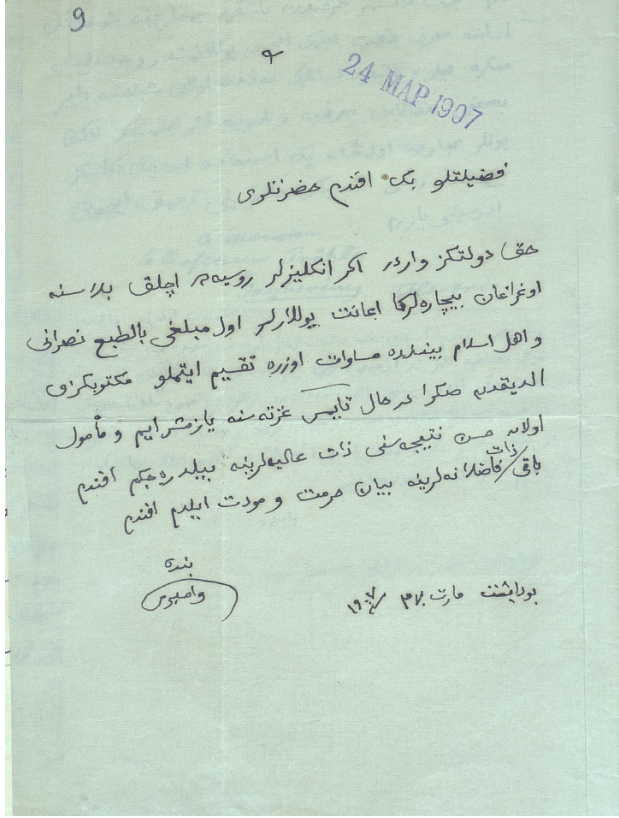 9
٩
24 МАР 1907
فضیلتلو بك افندم حضرتلری
حق دولتكز واردر اكر انكلیزلر روسیه ده اچلق بلاسنه
اوغراغان بیچاره لركا اعانت یوللارلر اول مبلغی بالطبع نصرانی
و اهل اسلام بیننده مساوات اوزره تقسیم ایتملو مكتوبكزی
الدیقدن صكرا درحال تایمس غزته سنه یازمشر ایم و مأمول
اولان حسن نتیجه سنی ذات عالیه لرینه بیلدره جكم افندم
باقی ذات فاضلانه لرینه بیان حرمت و مودت ایلدم افندم
بنده
وامبری
بوداپشت مارت ١٩٠٧